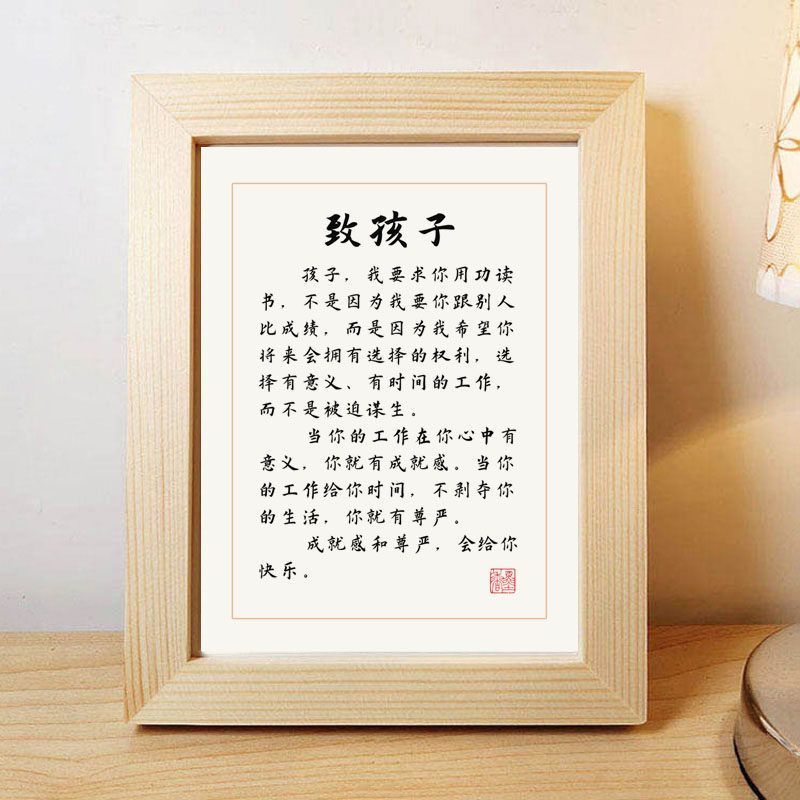 致孩子
孩子，我要求你用功读
书，不是因为我要你跟别人
比成绩，而是因为我希望你
将来会拥有选择的权利，选
择有意义、有时间的工作，
而不是被迫谋生。
当你的工作在你心中有
意义，你就有成就感。当你
的工作给你时间，不剥夺你
的生活，你就有尊严。
成就感和尊严，会给你
快乐。